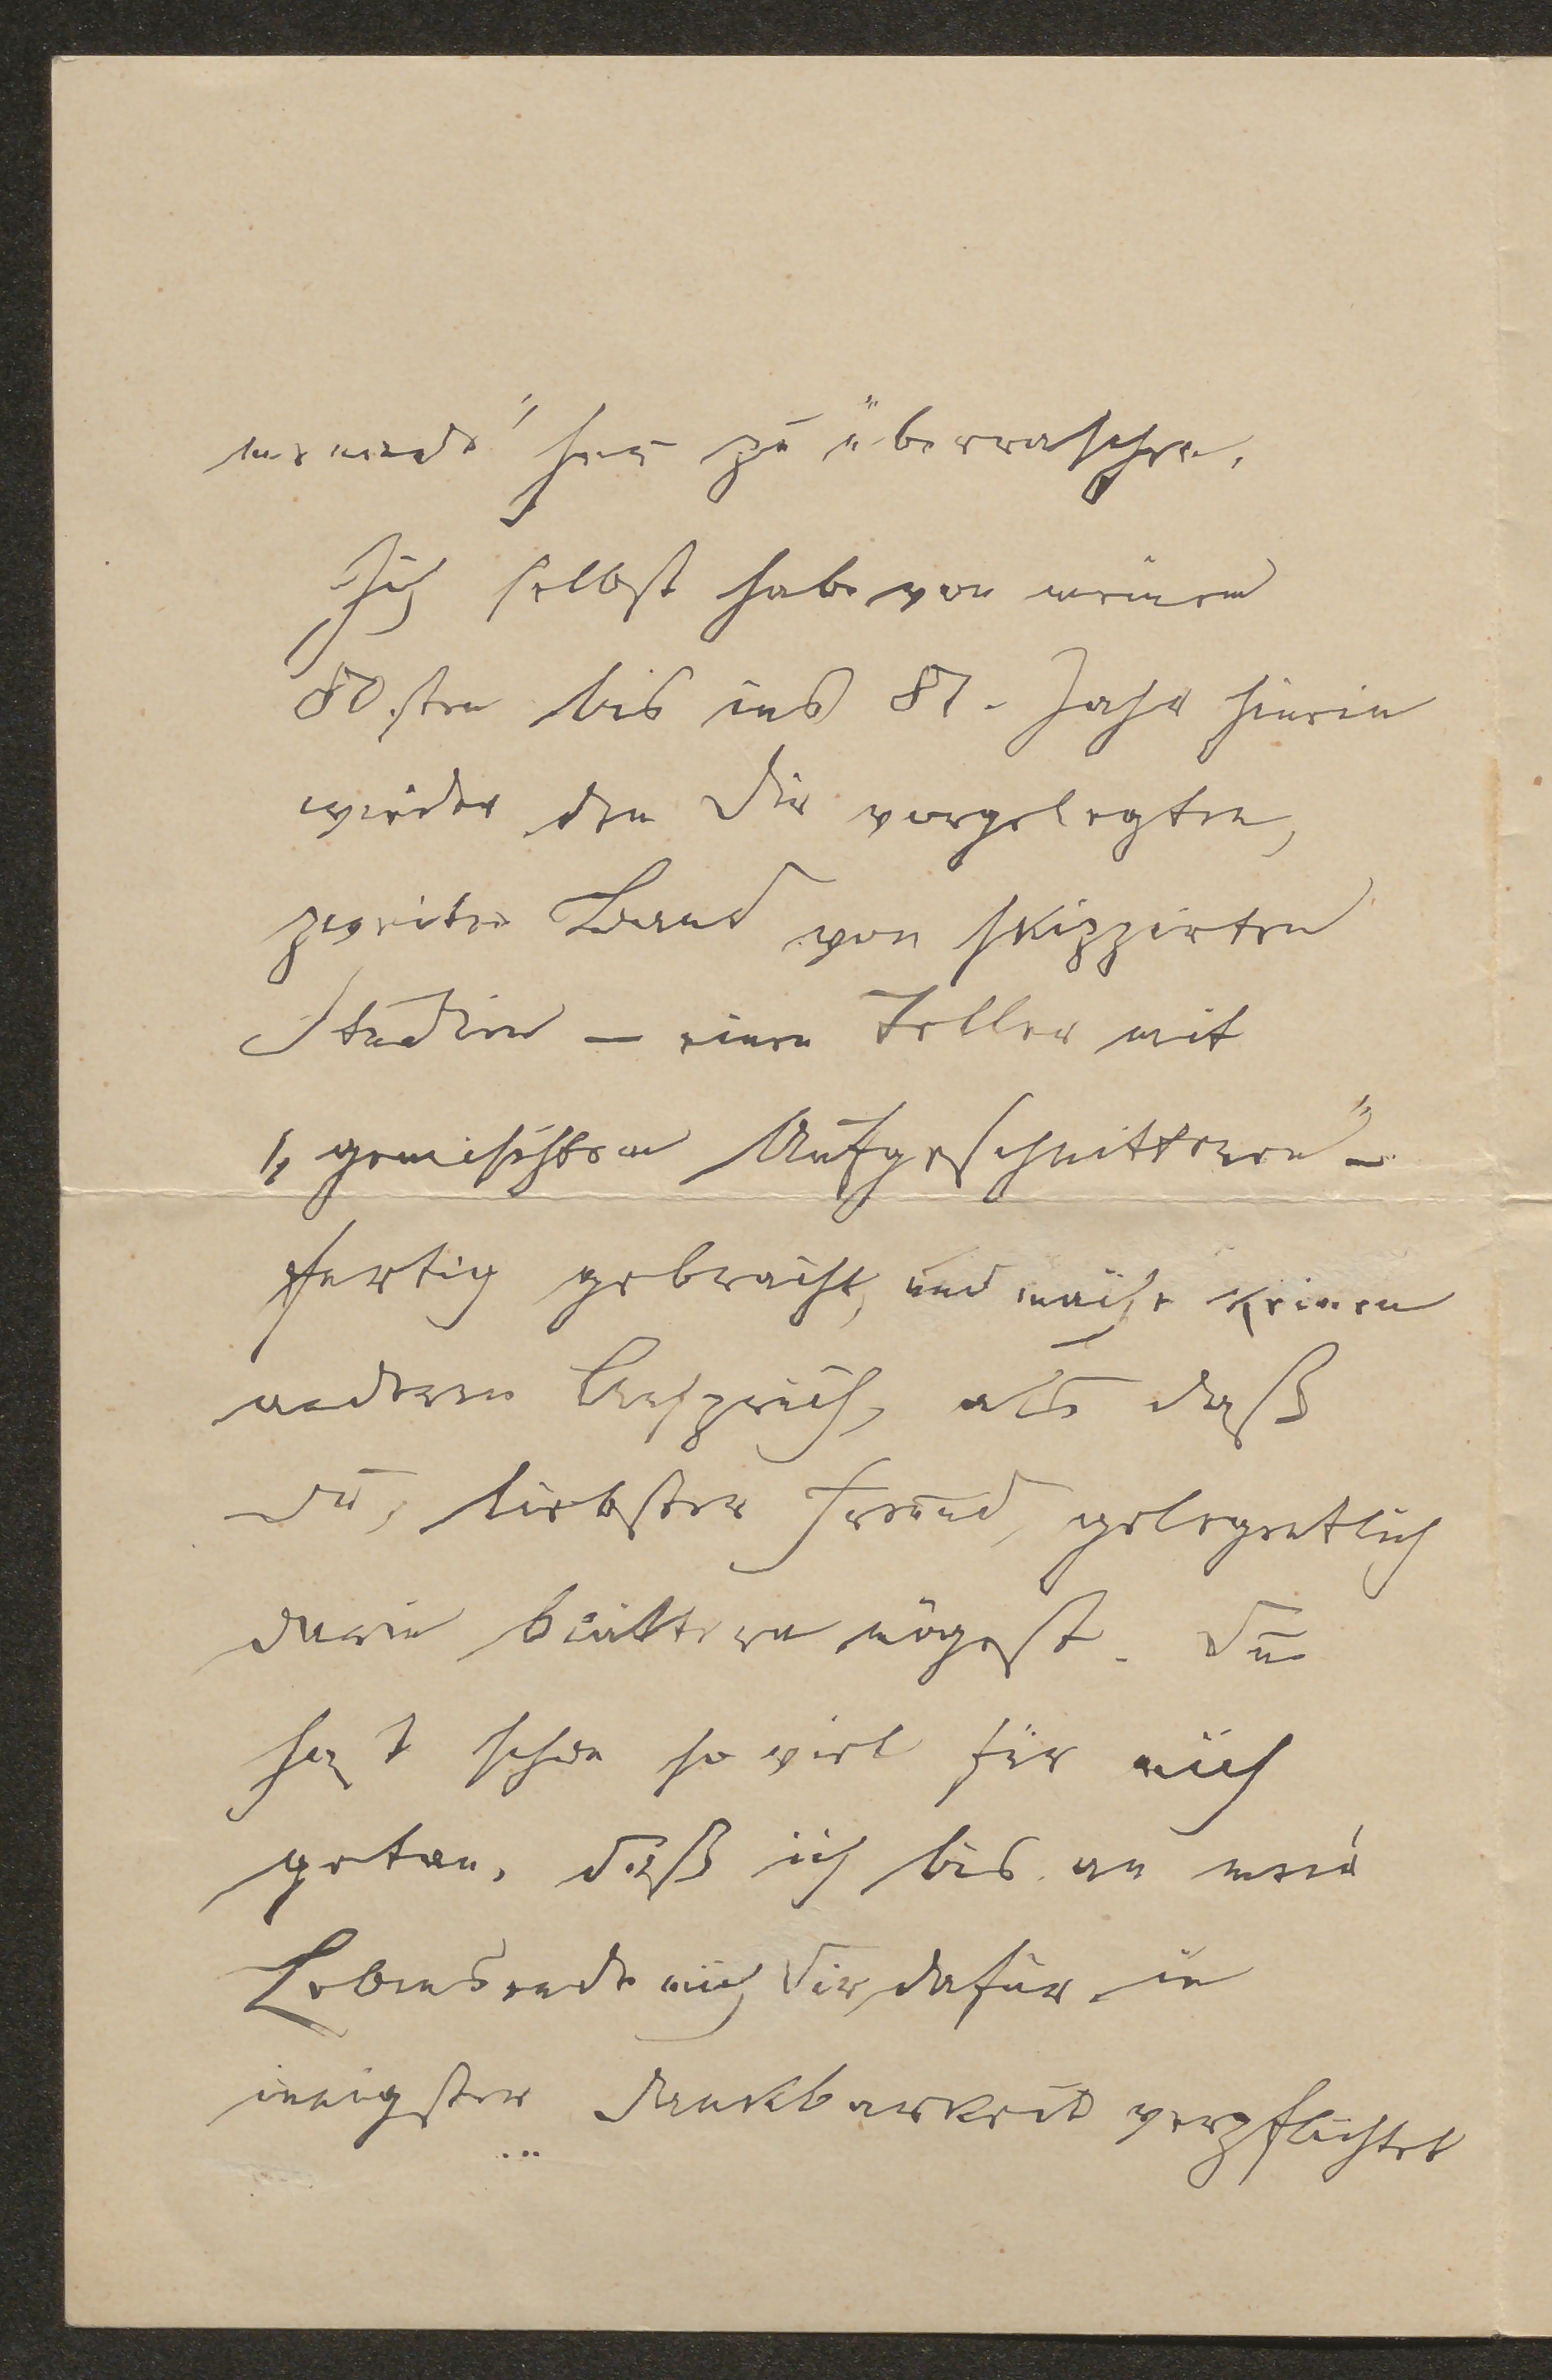 zu überraschen.
Ich selbst habe von meinem
80.sten bis ins 87. Jahr hinein
wieder den Dir vorgelegten,
zweiten Band von skizzirten
Studien — einen Teller mit
„gemischtem Aufgeschnittenen" –
fertig gebracht, und mache keinen
anderen Anspruch, als daß
Du, liebster Freund, gelegentlich
darin blättern mögest. Du
hast schon so viel für mich
getan, daß ich bis an mein
Lebensende mich Dir dafür in
innigster Dankbarkeit verpflichtet
...